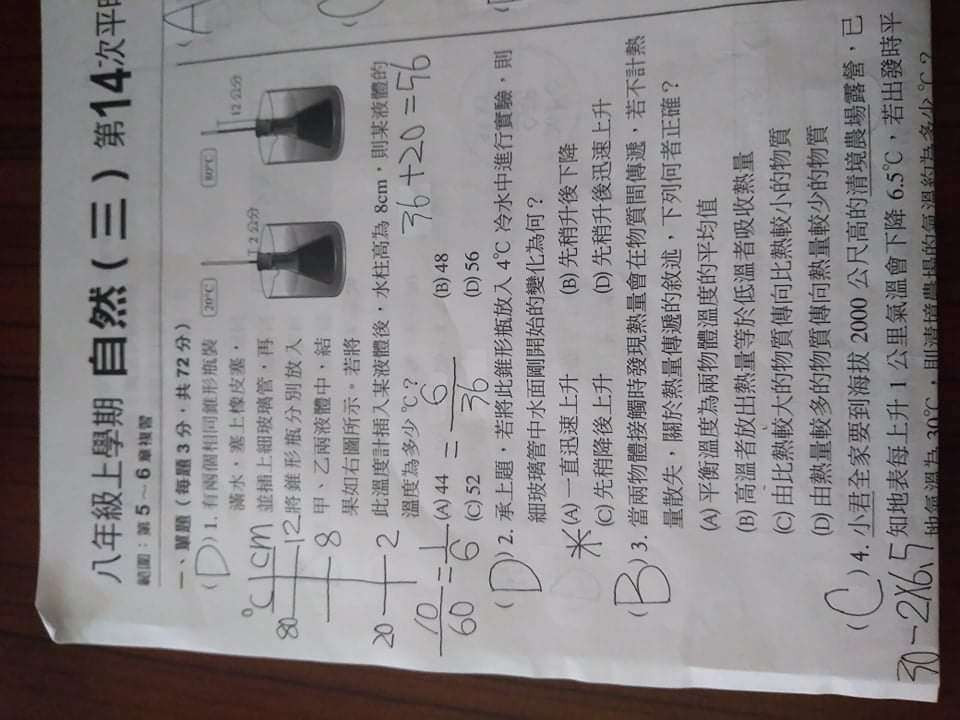 八年級上學期 自然(三) 第14次平時
範圍：第5～6章複習
一、單題（每題3分，共72分）
(D) 1. 有兩個相同錐形瓶裝
滿水，塞上橡皮塞，
並插上細玻璃管，再
將錐形瓶分別放入
甲、乙兩液體中，結
果如右圖所示。若將
20℃
2公分
80℃
12公分
此溫度計插入某液體後，水柱高為 8cm，則某液體的
溫度為多少 ℃？
(A) 44 (B) 48
(C) 52 (D) 56
℃ cm
80 12
8
20 2
10/60 = 1/6 = 6/36
36+20=56
(D) 2. 承上題，若將此錐形瓶放入 4℃ 冷水中進行實驗，則
細玻璃管中水面剛開始的變化為何？
(A) 一直迅速上升 (B) 先稍升後下降
(C) 先稍降後上升 (D) 先稍升後迅速上升
(B) 3. 當兩物體接觸時發現熱量會在物質間傳遞，若不計熱
量散失，關於熱量傳遞的敘述，下列何者正確？
(A) 平衡溫度為兩物體溫度的平均值
(B) 高溫者放出熱量等於低溫者吸收熱量
(C) 由比熱較大的物質傳向比熱較小的物質
(D) 由熱量較多的物質傳向熱量較少的物質
(C) 4. 小君全家要到海拔 2000 公尺高的清境農場露營，已
知地表每上升 1 公里氣溫會下降 6.5℃，若出發時平
地氣溫為 30℃，則清境農場的氣溫約為多少 ℃？
30-2×6.5